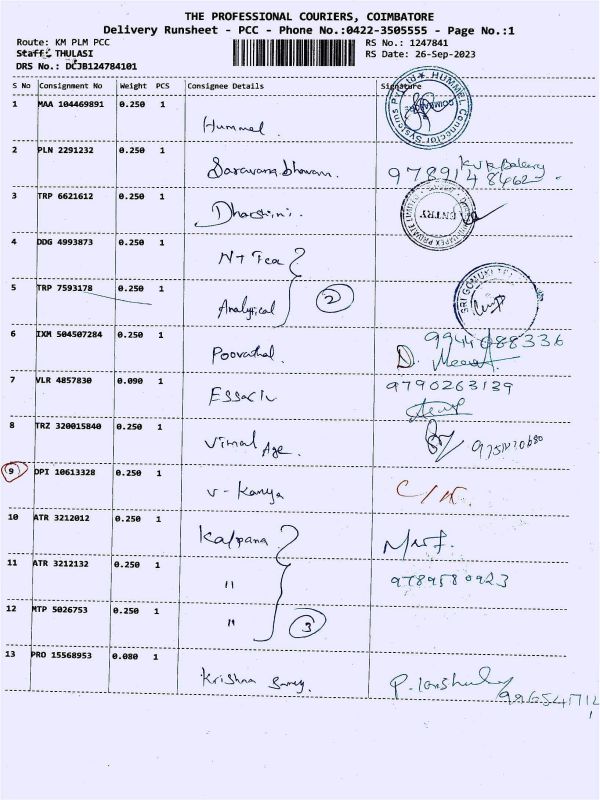 THE PROFESSIONAL COURIERS, COIMBATORE
Delivery Runsheet - PCC - Phone No.:0422-3505555 - Page No.:1
Route: KM PLM PCC RS No.: 1247841
Staff: THULASI RS Date: 26-Sep-2023
DRS No.: DCJB124784101
S No Consignment No Weight PCS Consignee Details Signature
1 MAA 104469891 0.250 1 Hummel
HUMMEL Connector Systems
2 PLN 2291232 0.250 1 Saravana bhavan.
3 TRP 6621612 0.250 1 Dharshini.
ENTRY
4 DDG 4993873 0.250 1 N T Tea
5 TRP 7593178 0.250 1 Analytical 2
SRI
6 IXM 504507284 0.250 1 Poovathal.
7 VLR 4857830 0.090 1 9790263139
8 TRZ 320015840 0.250 1 Vimal Age.
9 DPI 10613328 0.250 1 V-Kanya
10 ATR 3212012 0.250 1 Kalpana
11 ATR 3212132 0.250 1 " 9789580923
12 MTP 5026753 0.250 1 " 3
13 PRO 15568953 0.080 1 Krishna